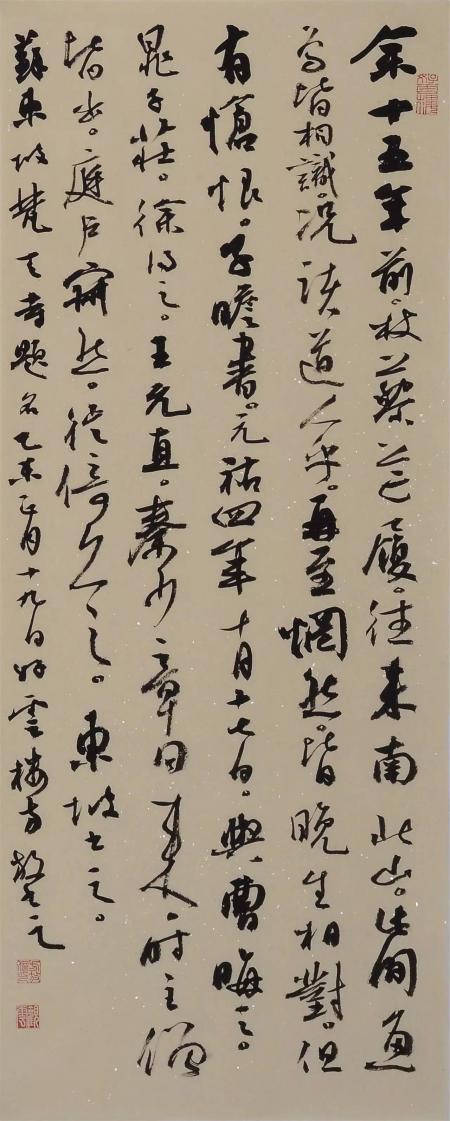 余十五年前。杖藜芒履。往来南北山。此间鱼
鸟皆相識。况諸道人乎。再至惘然。皆晚生相對。但
有愴恨。子瞻書。元祐四年十月十七日。與曹晦之。
晁子莊。徐得之。王元直。秦少章同來。時主僧
皆出。庭户寂然。徙倚久之。東坡书之。
蘇東坡梵天寺題名乙未正月十九日於雲樓方